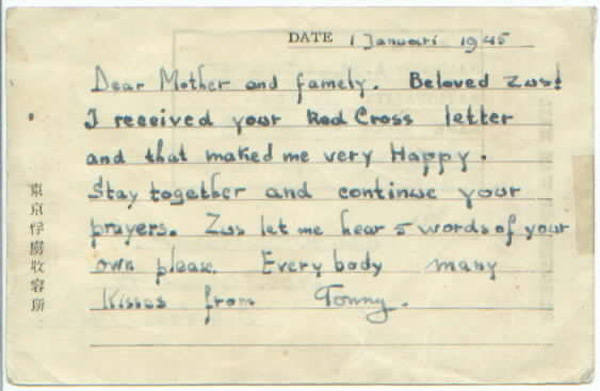 DATE 1 Januari 1945
Dear Mother and famely. Beloved Zus!
I received your Red Cross letter
and that maked me very Happy.
Stay together and continue your
prayers. Zus let me hear 5 words of your
own please. Every body many
Kisses from Tonny.
東京俘虜收容所